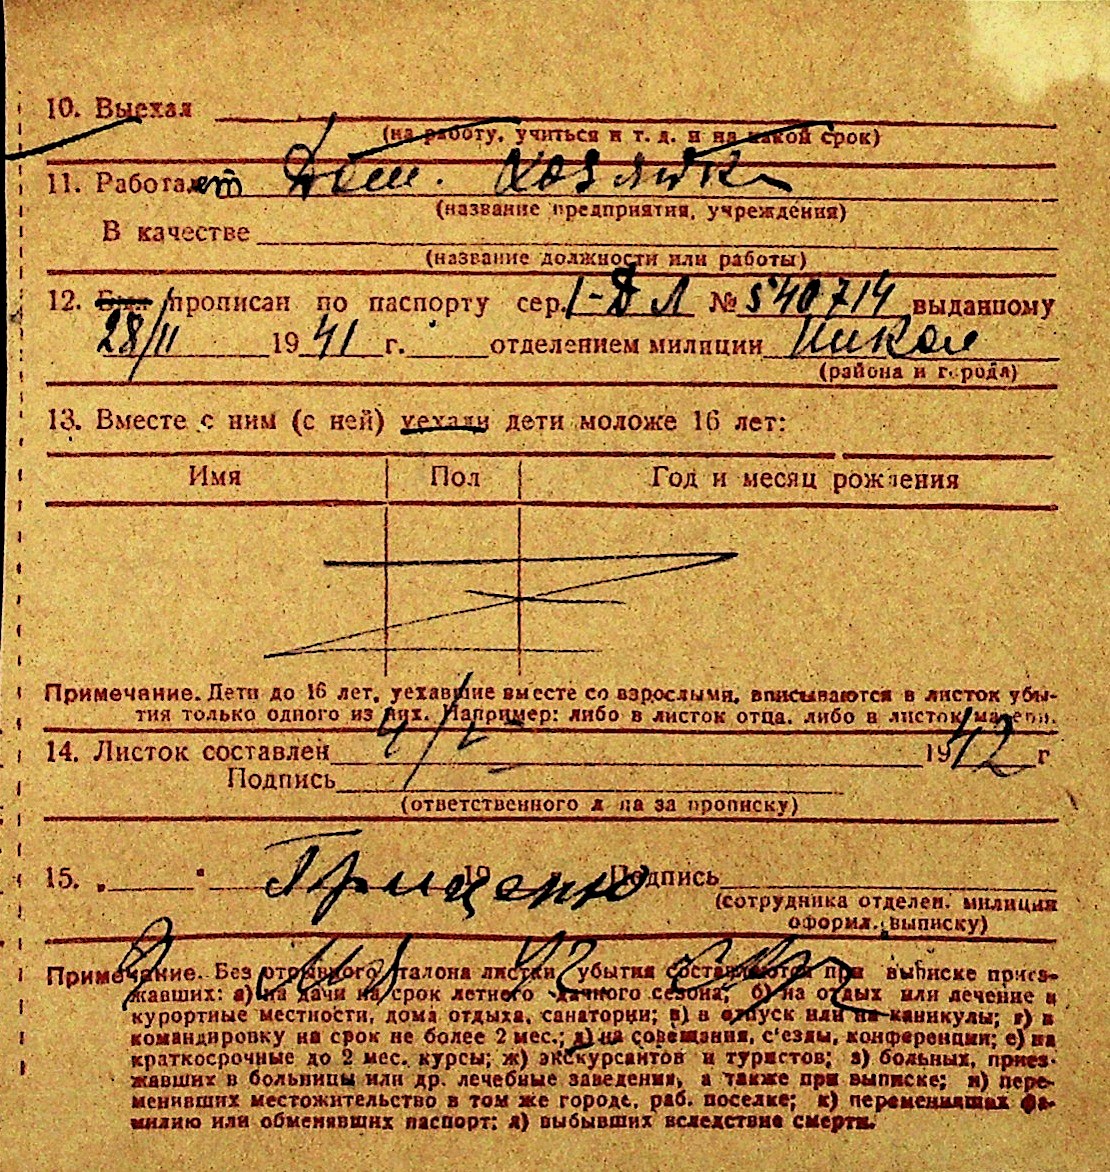 10. Выехал
(на работу, учиться и т. д. и на какой срок)
11. Работает Дом. хозяйка
(название предприятия, учреждения)
В качестве
(название должности или работы)
12. Был прописан по паспорту сер. I-ДЛ № 540714 выданному
28/II 1941 г. отделением милиции Никол
(района и города)
13. Вместе с ним (с ней) уехали дети моложе 16 лет:
Имя Пол Год и месяц рождения
Примечание. Дети до 16 лет, уехавшие вместе со взрослыми, вписываются в листок убы-
тия только одного из них. Например: либо в листок отца, либо в листок матери.
14. Листок составлен 4/I 1942 г
Подпись
(ответственного лица за прописку)
15. „ " Гриценко 19 Подпись
(сотрудника отделен. милиции
оформл. выписку)
42
Примечание. Без отрывного талона листки убытия составляются при выписке приез-
жавших: а) на дачи на срок летнего дачного сезона; б) на отдых или лечение в
курортные местности, дома отдыха, санатории; в) в отпуск или на каникулы; г) в
командировку на срок не более 2 мес.; д) на совещания, с'езды, конференции; е) на
краткосрочные до 2 мес. курсы; ж) экскурсантов и туристов; з) больных, приез-
жавших в больницы или др. лечебные заведения, а также при выписке; и) пере-
менивших местожительство в том же городе, раб. поселке; к) переменивших фа-
милию или обменявших паспорт; л) выбывших вследствие смерти.